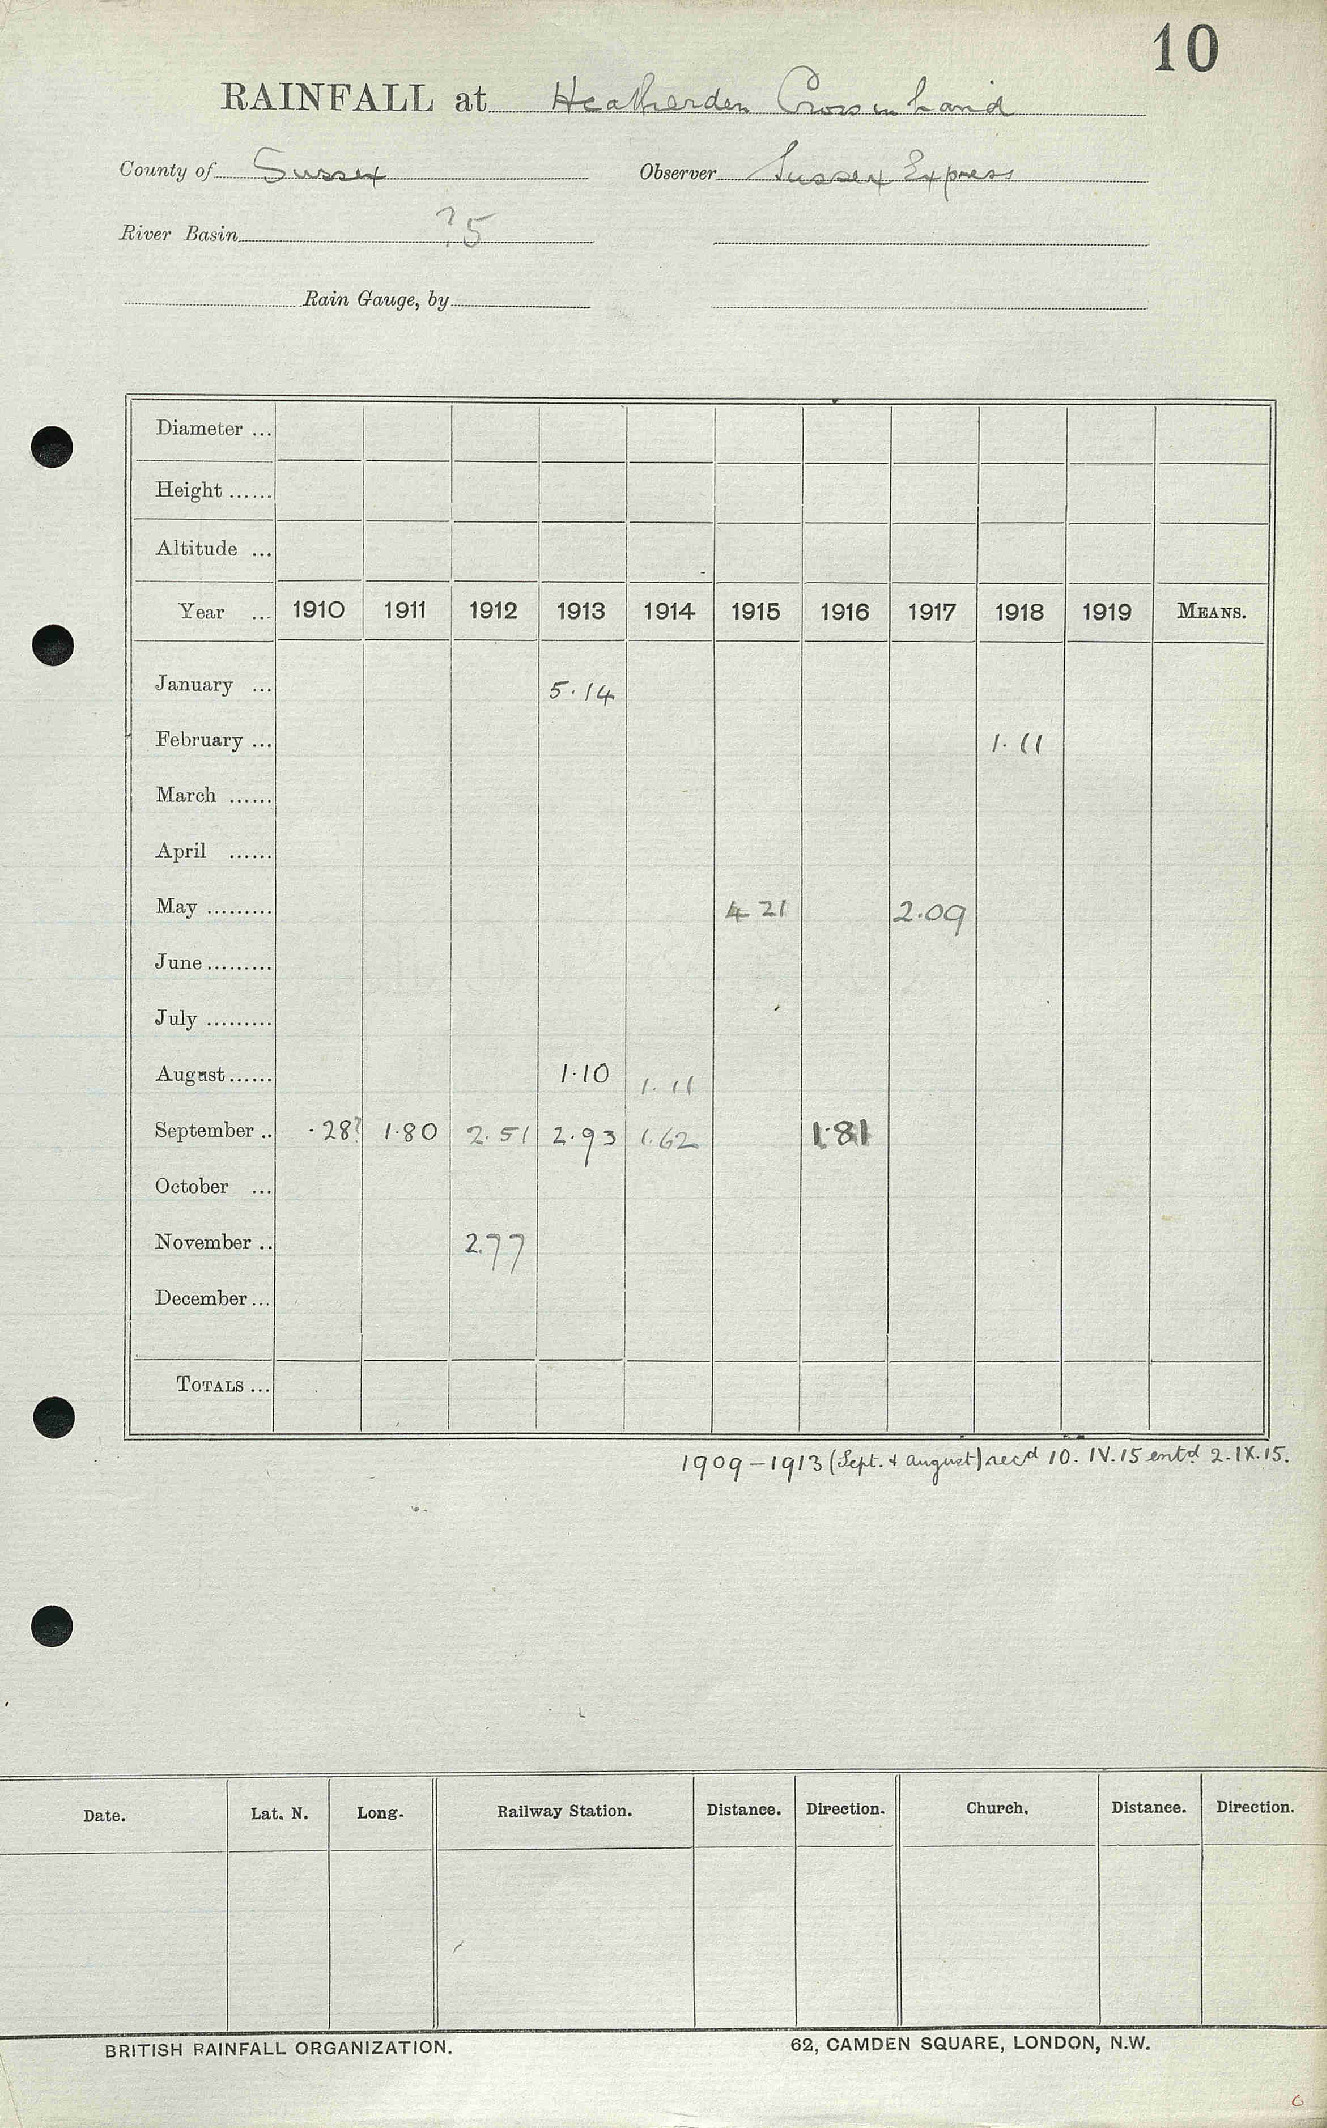 10
RAINFALL at Heatherden Cross in hand
County of Sussex Observer Sussex Express
River Basin ? 5
Rain Gauge, by
Diameter ...
Height ......
Altitude ...
Year ... 1910 1911 1912 1913 1914 1915 1916 1917 1918 1919 MEANS.
January ... 5.14
February ... 1.11
March ......
April ......
May ......... 4 21 2.09
June .........
July .........
August ...... 1.10 1.11
September .. .28? 1.80 2.51 2.93 1.62 1.81
October ...
November .. 2.77
December ...
TOTALS ...
1909–1913 (Sept. & August) recd 10. IV. 15 entd 2. IX. 15.
Date. Lat. N. Long. Railway Station. Distance. Direction. Church. Distance. Direction.
BRITISH RAINFALL ORGANIZATION. 62, CAMDEN SQUARE, LONDON, N.W.
6